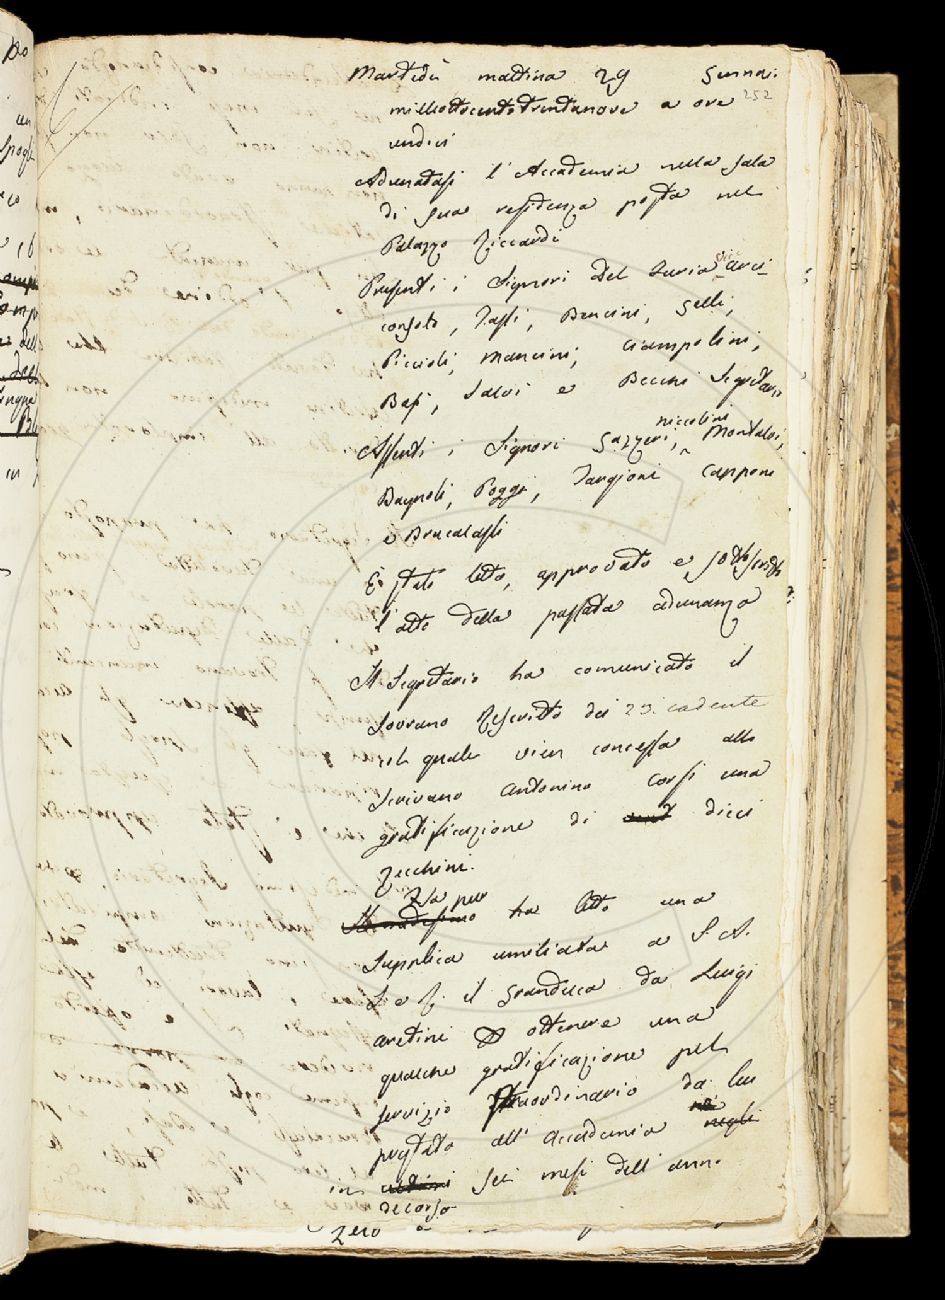 Martedì mattina 29 Genna:
milleottocentotrentanove a ore 252
undici
Adunatasi l'Accademia nella sala
di sua residenza posta nel
Palazzo Riccardi
Presenti i Signori Del Furia Vice Arci-
consolo, Tassi, Bencini, Gelli,
Piccioli, Mancini, Ciampolini,
Basi, Salvi e Becchi Segretario
Assenti i Signori Gazzeri, Niccolini, Montalvi,
Bagnoli, Poggi, Targioni Capponi
e Brucalassi
È stato letto, approvato e sottoscritto
l'atto della passata adunanza
Il Segretario ha comunicato il
Sovrano Rescritto dei 23. cadente
nel quale vien concessa allo
Scrivano Antonino Corsi una
gratificazione di dieci
zecchini.
Il medesimo ha letto una
Supplica umiliata a S. A.
I. e R. il Granduca da Luigi
Aretini ottenere una
qualche gratificazione pel
servizio straordinario da lui
prestato all'Accademia negli
in ultimi sei mesi dell'anno
decorso